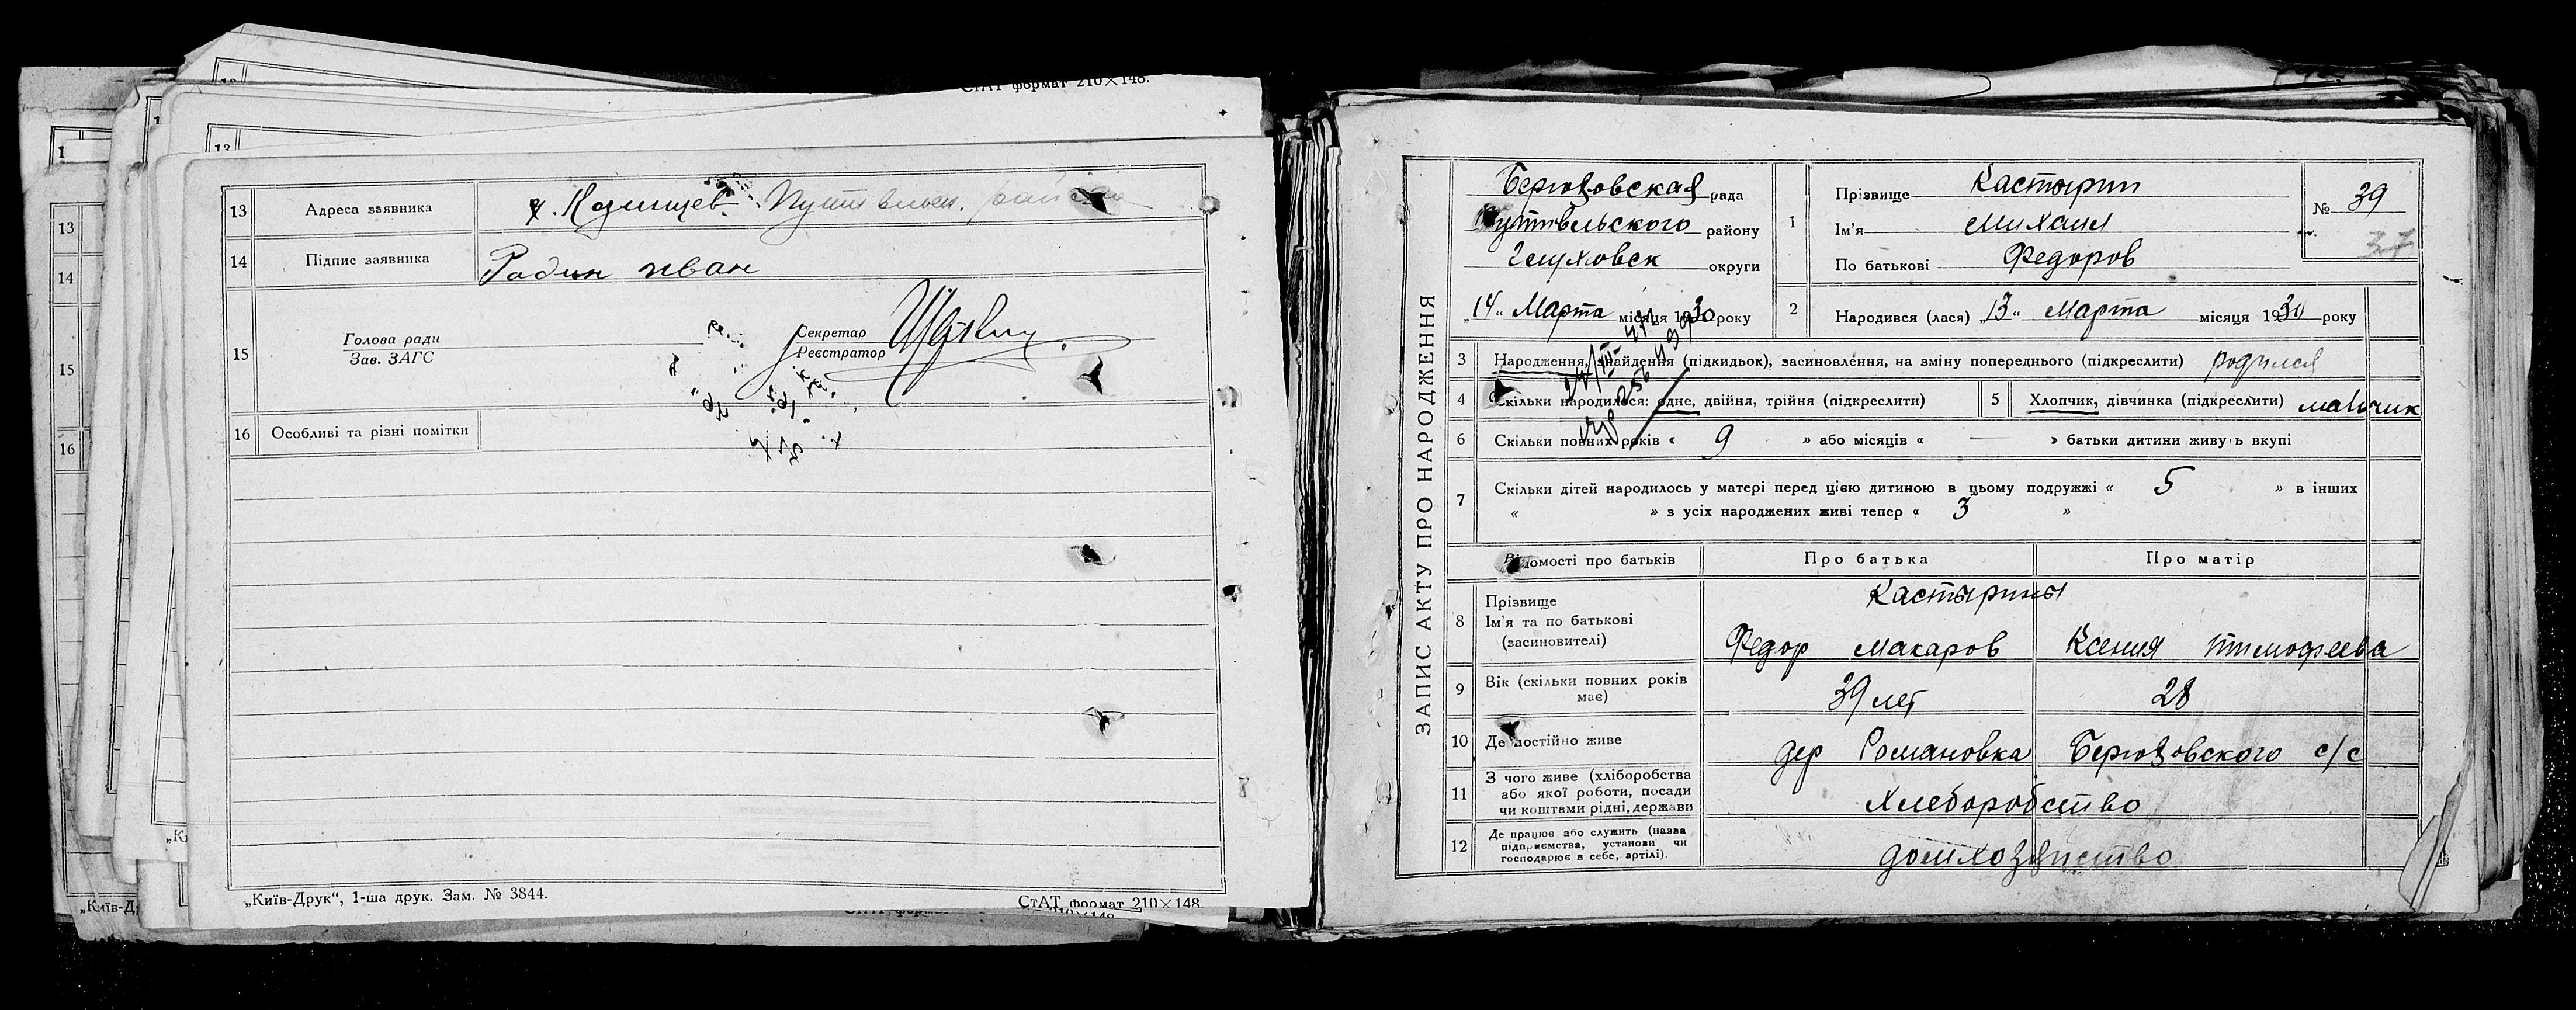 СтАТ формат 210×148.
13 Адреса заявника х. Казинцев Путивльск. района
14 Підпис заявника Радин иван
15 Голова ради
Зав. ЗАГС
Секретар
Реєстратор
16 Особливі та різні помітки
„Київ-Друк“, 1-ша друк. Зам. № 3844.
СтАТ формат 210×148.
ЗАПИС АКТУ ПРО НАРОДЖЕННЯ
Берюховская рада
Путивльского району
Глуховск округи
„14“ Марта місяця 1930 року
1 Прізвище Кастырин
Ім'я михаил
По батькові Федоров
№ 39
37
2 Народився (лася) „13“ Марта місяця 1930 року
3 Народження, знайдення (підкидьок), засиновлення, на зміну попереднього (підкреслити) родился
4 Скільки народилося: одне, двійня, трійня (підкреслити)
5 Хлопчик, дівчинка (підкреслити) мальчик
6 Скільки повних років « 9 » або місяців « — » батьки дитини живуть вкупі
7 Скільки дітей народилось у матері перед цією дитиною в цьому подружжі « 5 » в інших
« » з усіх народжених живі тепер « 3 »
Відомості про батьків Про батька Про матір
8 Прізвище
Ім'я та по батькові
(засиновителі)
Кастырины
Федор макаров Ксения тимофеева
9 Вік (скільки повних років має) 39 лет 28
10 Де постійно живе дер Романовка Берюховского с/с
11 З чого живе (хліборобства
або якої роботи, посади
чи коштами рідні, держави
Хлеборобство
12 Де працює або служить (назва
підприємства, установи чи
господарює в себе, артілі).
домхозяйство